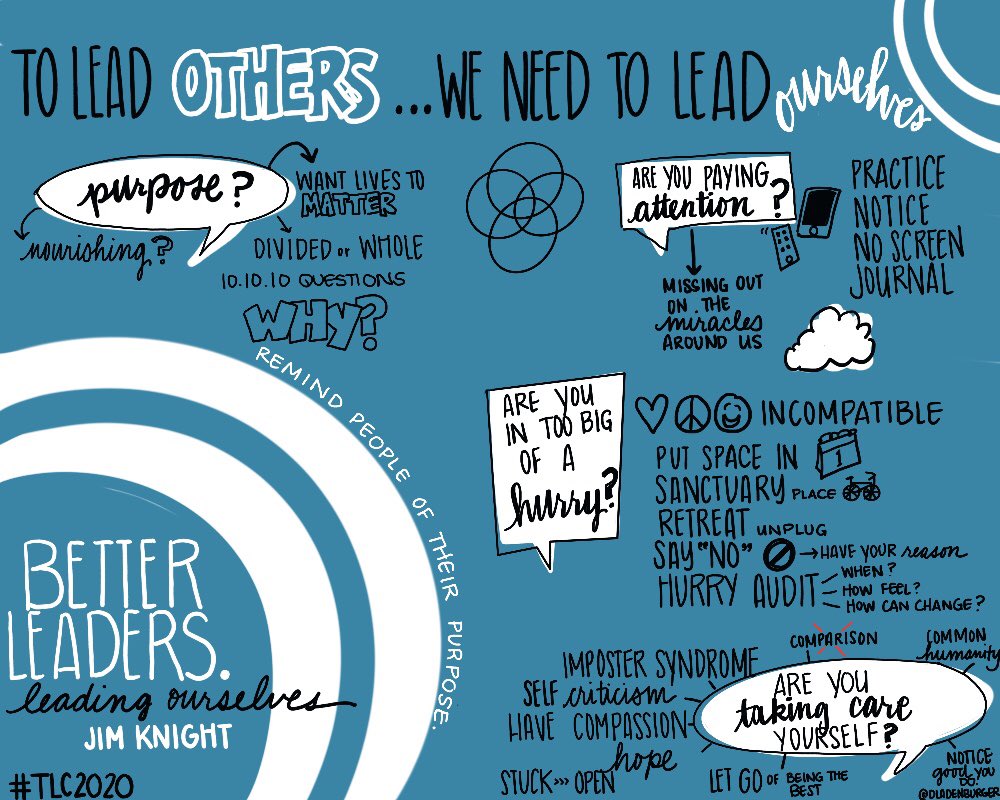 TO LEAD OTHERS ...WE NEED TO LEAD ourselves
purpose?
WANT LIVES TO
MATTER
nourishing?
DIVIDED or WHOLE
10.10.10 QUESTIONS
WHY?
REMIND PEOPLE OF THEIR PURPOSE.
ARE YOU PAYING
attention?
MISSING OUT
ON THE
miracles
AROUND US
PRACTICE
NOTICE
NO SCREEN
JOURNAL
ARE YOU
IN TOO BIG
OF A
hurry?
INCOMPATIBLE
PUT SPACE IN
1
SANCTUARY PLACE
RETREAT UNPLUG
SAY "NO" → HAVE YOUR reason
HURRY AUDIT
WHEN?
HOW FEEL?
HOW CAN CHANGE?
ARE YOU
taking care
YOURSELF?
COMPARISON
COMMON
humanity
IMPOSTER SYNDROME
SELF criticism
HAVE COMPASSION
hope
STUCK >>> OPEN
LET GO OF BEING THE
BEST
NOTICE
good YOU
DO!
@DLADENBURGER
BETTER
LEADERS.
leading ourselves
JIM KNIGHT
#TLC2020